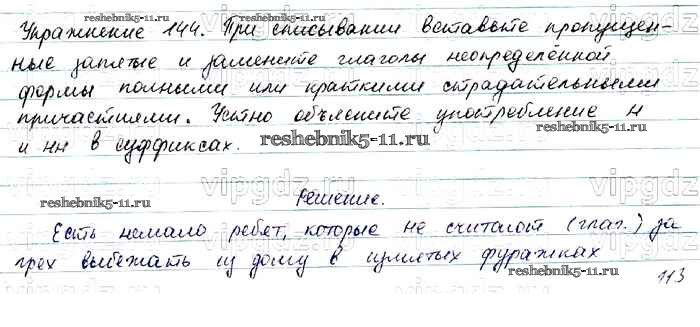 Упражнение 144. При списывании вставьте пропущен-
ные запятые и замените глаголы неопределённой
формы полными или краткими страдательными
причастиями. Устно объясните употребление н
и нн в суффиксах.
reshebnik5-11.ru
reshebnik5-11.ru
reshebnik5-11.ru
reshebnik5-11.ru
vipgdz
Решение.
Есть немало ребят, которые не считают (глаг.) за
грех выбежать из дому в измятых фуражках
reshebnik5-11.ru
113